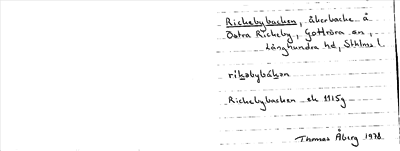 Rickebybacken, åkerbacke å
Östra Rickeby, Gottröra sn,
Långhundra hd, Sthlms l.
rikabybákan
Rickebybacken ek 115g
Thomas Åberg 1978